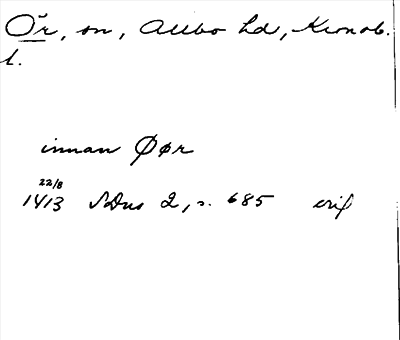 Ör, sn, Allbo hd, Kronob.
l.
innan Øør
22/8
1413 SDns 2, s. 685 orig